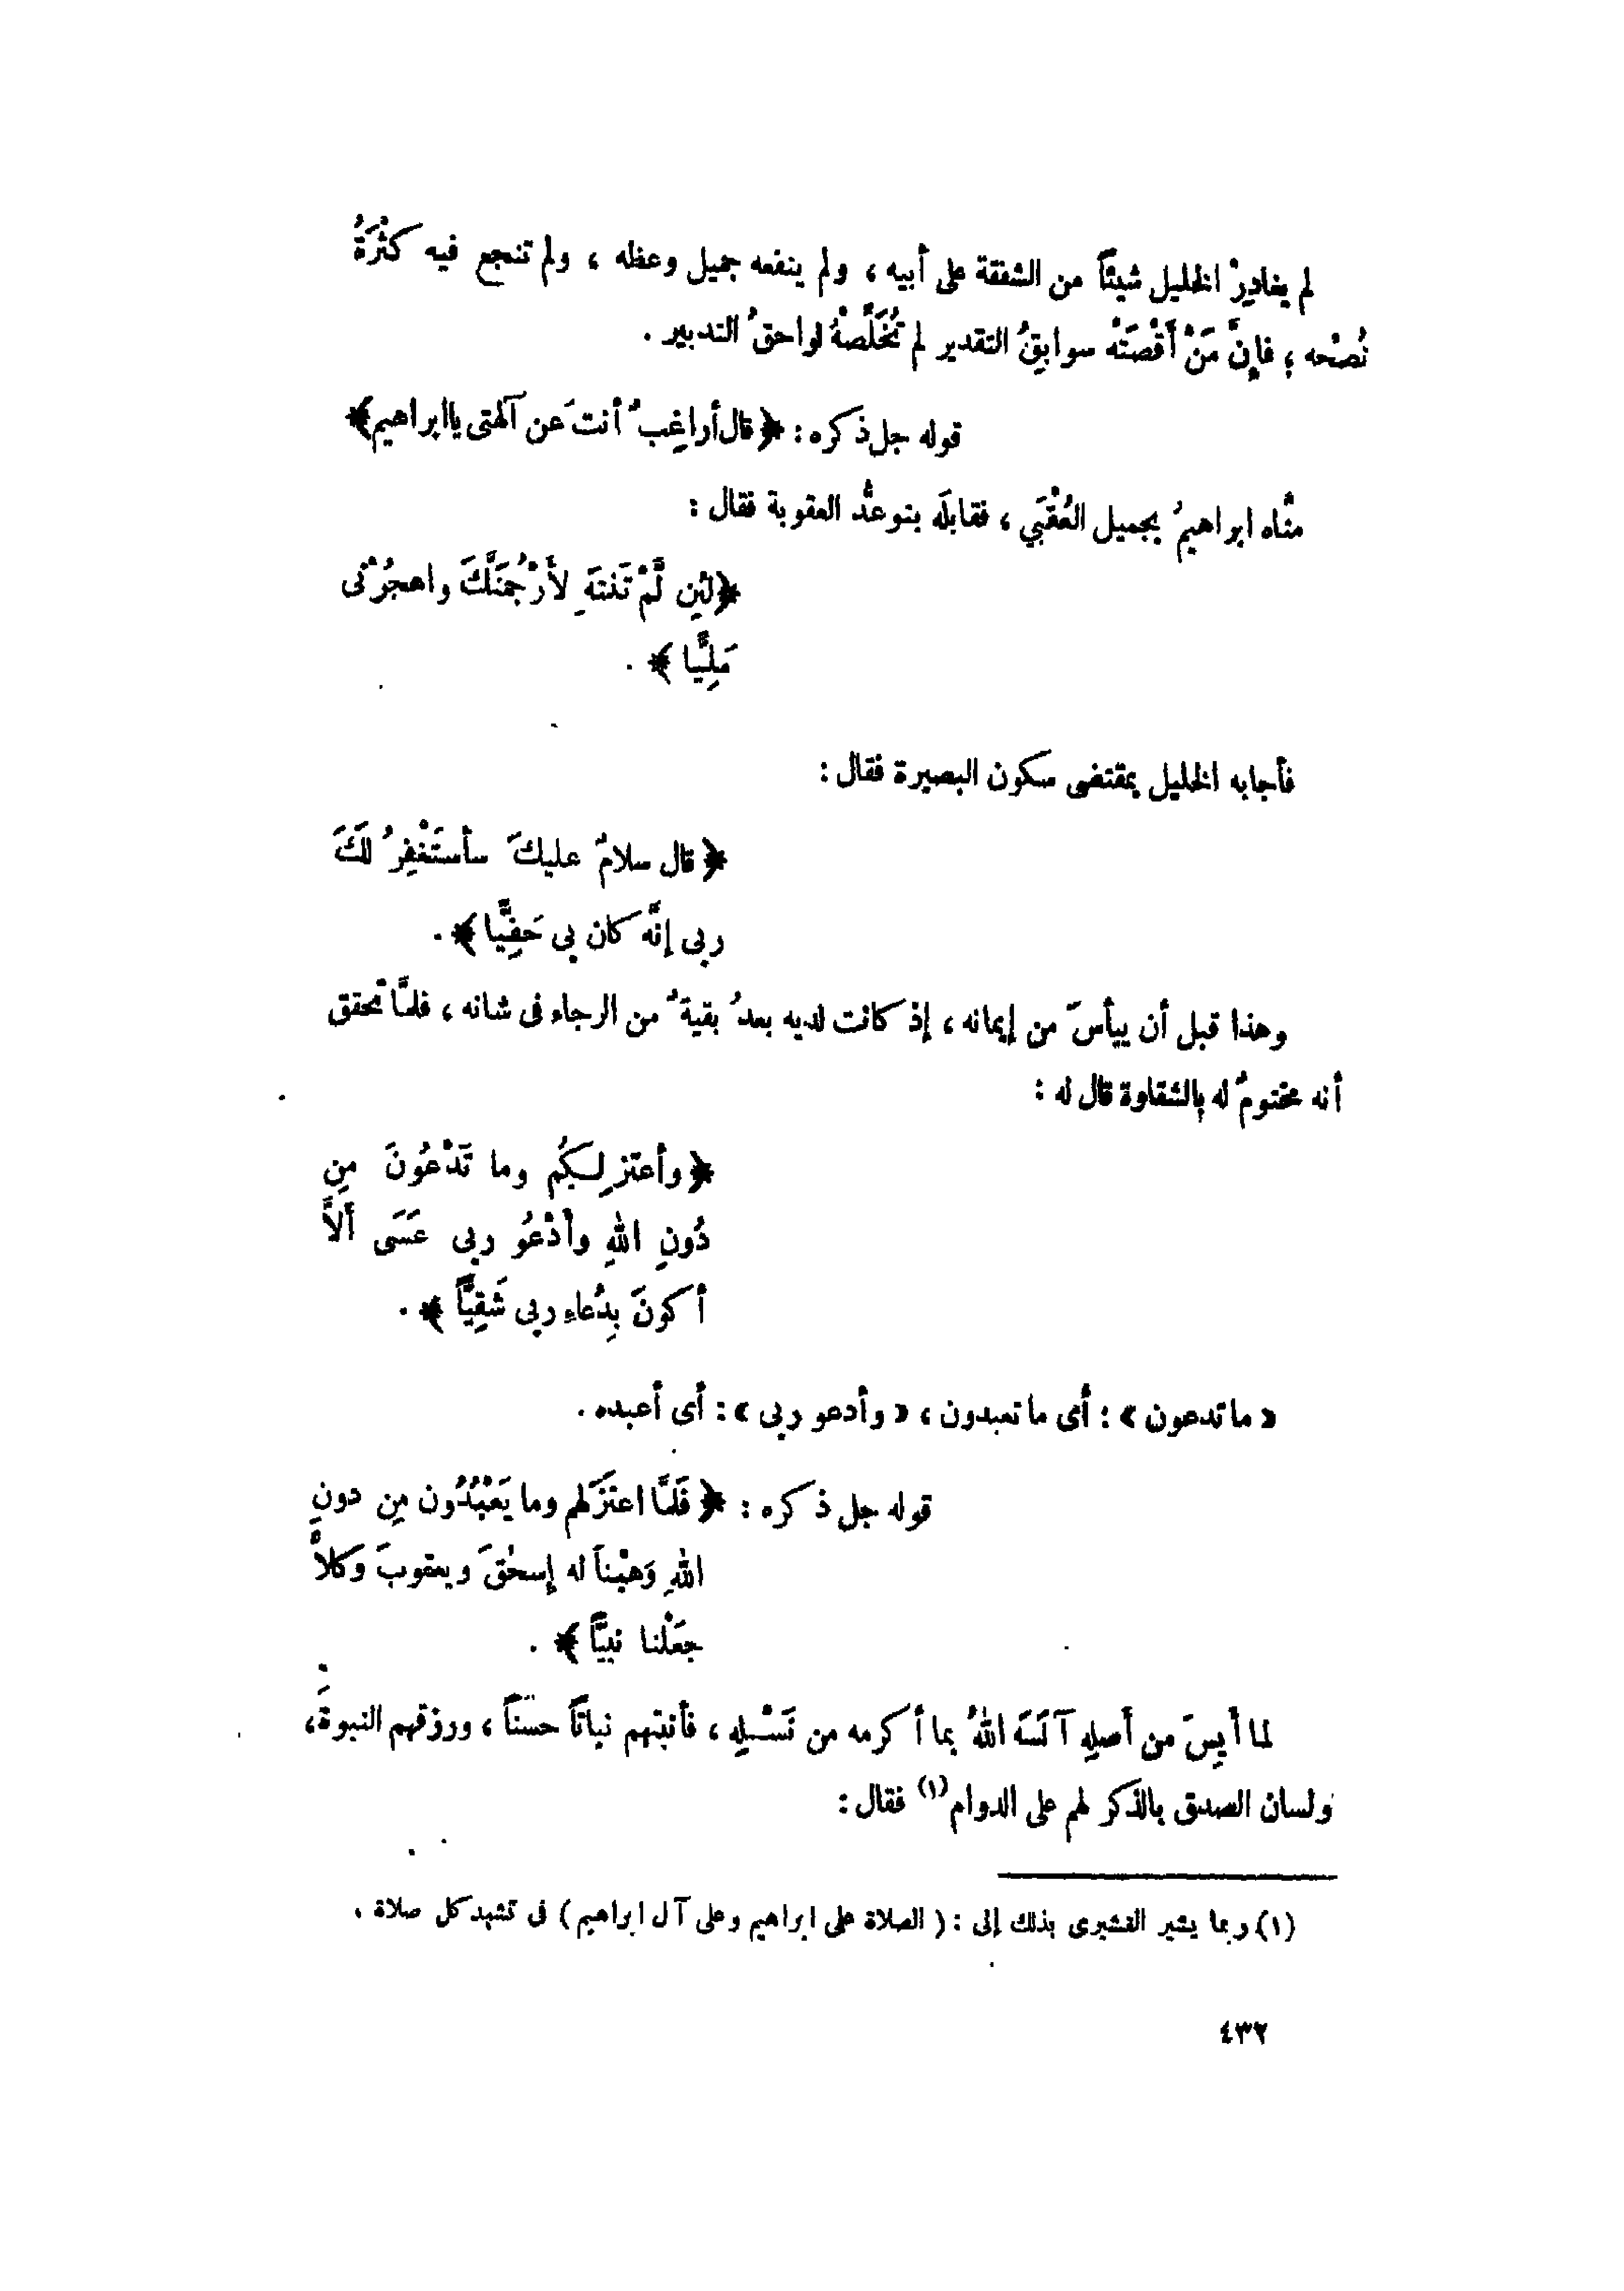 لم يغادِرْ الخليل شيئاً من الشفقة على أبيه ، ولم ينفعه جميل وعظه ، ولم تنجع فيه كثْرَةُ
نُصْحه ؛ فإنَّ مَنْ أَقْصَتْه سوابقُ التقدير لم تُخَلِّصْهُ لواحقُ التدبير .
قوله جل ذكره : ﴿ قال أراغِبٌ أنتَ عن آلهتى يا ابراهيم ﴾
منَّاه ابراهيمُ بجميل العُقْبَى ، فقابلَه بتوعُّد العقوبة فقال :
﴿ لئن لَّمْ تَنتَهِ لأَرْجُمَنَّكَ واهجُرْنى
مَلِيًّا ﴾ .
فأجابه الخليل بمقتضى سكون البصيرة فقال :
﴿ قال سلامٌ عليكَ سأستَغْفِرُ لَكَ
ربى إنَّه كان بى حَفِيًّا ﴾ .
وهذا قبل أن ييأسَ من إيمانه ، إذ كانت لديه بعدُ بقيةٌ من الرجاء فى شانه ، فلمَّا تحقق
أنه مختومٌ له بالشقاوة قال له :
﴿ وأعتزِلُكم وما تَدْعُونَ مِن
دُونِ اللهِ وأَدْعُو ربى عَسَى ألاَّ
أكونَ بِدُعاءِ ربى شَقِيًّا ﴾ .
« ما تدعون » : أى ما تعبدون ، « وأدعو ربى » : أى أعبده .
قوله جل ذكره : ﴿ فَلمَّا اعتَزَلَهم وما يَعْبُدُون مِن دونِ
اللهِ وَهَبْنَا له إسحٰقَ ويعقوبَ وَكلاًّ
جَعَلْنا نبيًّا ﴾ .
لما أَيِسَ من أصلِهِ آنَسَه اللهُ بما أكرمه من نَسْلِهِ ، فأنبتهم نباتاً حسناً ، ورزقهم النبوةَ ،
ولسان الصدق بالذكر لهم على الدوام (١) فقال :
(١) ربما يشير القشيرى بذلك إلى : ( الصلاة على ابراهيم وعلى آل ابراهيم ) فى تشهد كل صلاة .
٤٣٢